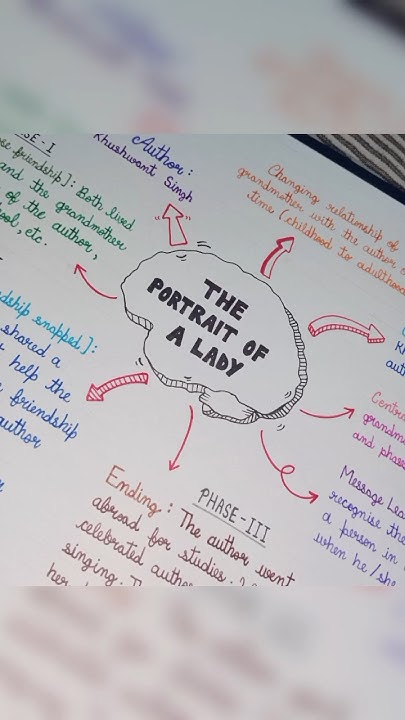 Author:
Khushwant Singh
SE-I
se friendship]: Both lived
and the grandmother
of the author,
ool, etc.
Changing relationship of
grandmother with the author
time (childhood to adulthood
THE
PORTRAIT OF
A LADY
dship snapped]:
shared a
help the
friendship
author
Centr
grandm
and phase
Message Lea
recognise the
a person in
when he/she
PHASE-III
Ending: The author went
abroad for studies
celebrated autho
singing. T
her